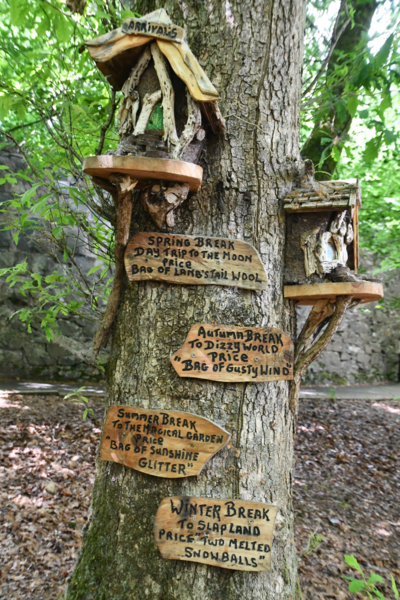 ARRIVALS
SPRING BREAK
DAY TRIP TO THE MOON
PRICE
BAG OF LAMB'S TAIL WOOL
AUTUMN BREAK
TO DIZZY WORLD
PRICE
"BAG OF GUSTY WIND"
SUMMER BREAK
TO THE MAGICAL GARDEN
PRICE
"BAG OF SUNSHINE
GLITTER"
WINTER BREAK
TO SLAPLAND
PRICE "TWO MELTED
SNOWBALLS"